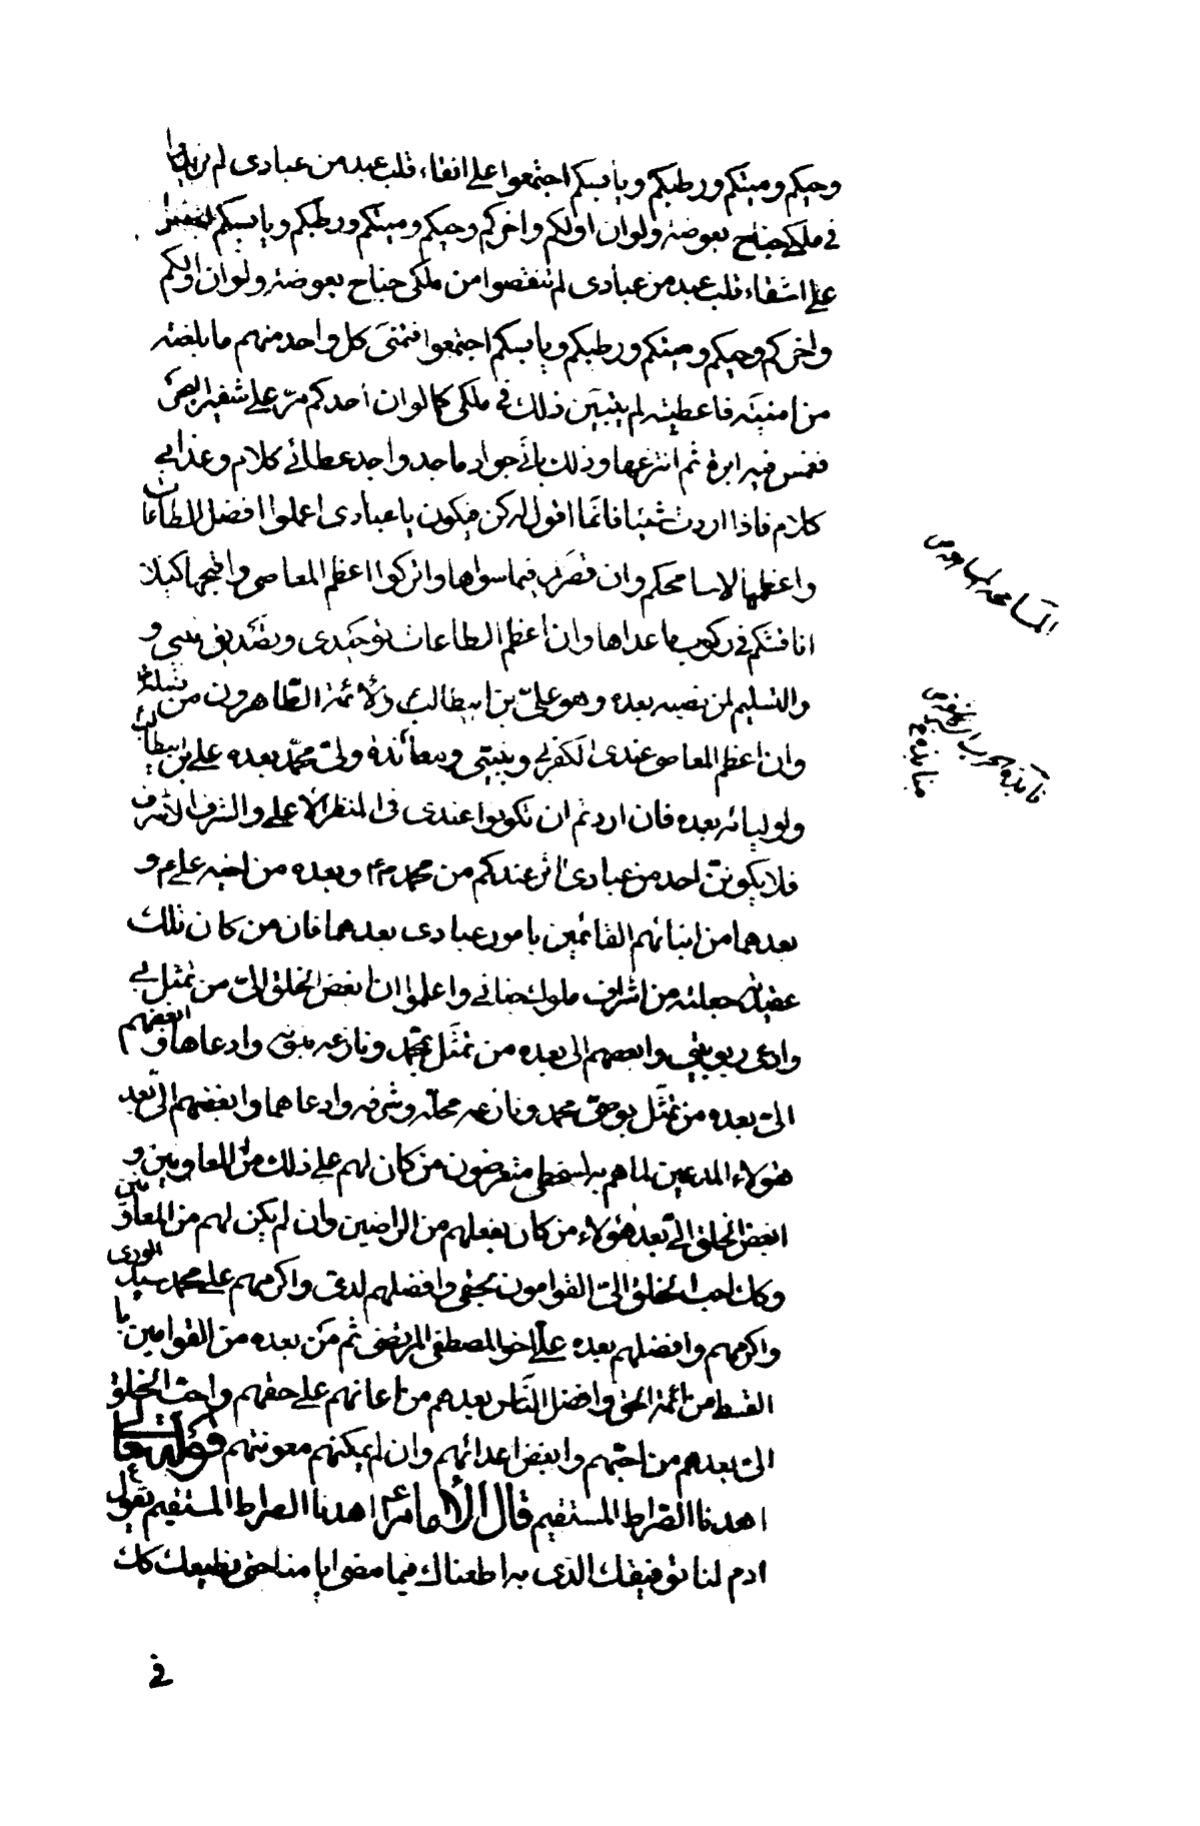 وحيكم وميتكم ورطبكم ويابسكم اجتمعوا على اتقاء قلب عبد من عبادى لم يزيدوا
فى ملكى جناح بعوضة ولو ان اولكم واخركم وحيكم وميتكم ورطبكم ويابسكم اجتمعوا
على اشقاء قلب عبد من عبادى لم ينقصوا من ملكى جناح بعوضة ولو ان اولكم
واخركم وحيكم وميتكم ورطبكم ويابسكم اجتمعوا فتمنى كل واحد منهم ما بلغته
من امنيته فاعطيته لم يتبين ذلك فى ملكى كما لو ان احدكم مرّ على شفير البحر
فغمس فيه ابرة ثم انتزعها وذلك بانى جواد ماجد واجد عطائى كلام وعذابى
كلام فاذا اردت شيئا فانما اقول له كن فيكون يا عبادى اعملوا افضل الطاعات
واعظمها لاسامحكم وان قصرتم فيما سواها واتركوا اعظم المعاصى واقبحها كيلا
اناقشكم فى ركوب ما عداها وان اعظم الطاعات توحيدى وتصديق نبيى و
والتسليم لمن نصبه بعده وهو علىّ بن ابيطالب والائمة الطاهرون من نسله
وان اعظم المعاصى عندى الكفر بى وبنبيى ومعاندة ولىّ محمّد بعده على بن ابيطالب
واوليائه بعده فان اردتم ان تكونوا عندى فى المنظر الاعلى والشرف الاشرف
فلا يكوننّ احد من عبادى اثر عندكم من محمد ص وبعده من اخيه على ع و
بعدهما من ابنائهم القائمين بامور عبادى بعدهما فان من كان تلك
عقيدته جعلته من اشراف ملوك جنانى واعلموا ان ابغض الخلق الىّ من تمثل بى
وادعى ربوبيتى وابغضهم الى بعده من تمثّل بمحمد ونازعه نبوته وادعاها وابغضهم
الىّ بعده من تمثّل بوصىّ محمد ونازعه محلّه وشرفه وادعاهما وابغضهم الىّ بعد
هؤلاء المدعين لما هم به لسخطى متعرضون من كان لهم على ذلك من المعاونين و
ابغض الخلق الىّ بعد هؤلاء من كان بفعلهم من الراضين وان لم يكن لهم من المعاونين
وكذلك احب الخلق الىّ القوامون بحقى وافضلهم لدىّ واكرمهم على محمد سيد الورى
واكرمهم وافضلهم بعده علىّ اخو المصطفى المرتضى ثم من بعده من القوامين با
القسط من ائمة الحق وافضل الناس بعدهم من اعانهم على حقهم واحب الخلق
الىّ بعدهم من احبّهم وابغض اعدائهم وان لم يمكنهم معونتهم قوله تعالى
اهدنا الصّراط المستقيم قال الامام ع اهدنا الصراط المستقيم يقول
ادم لنا توفيقك الذى به اطعناك فيما مضى ايامنا حتى نطيعك كك
فى